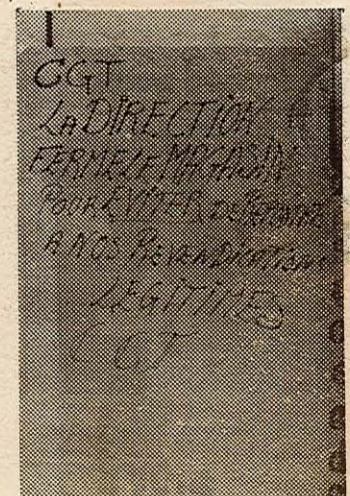 CGT
LA DIRECTION
FERME LE MAGASIN
POUR EVITER DE REPONDRE
A NOS REVENDICATIONS
LEGITIMES
CGT